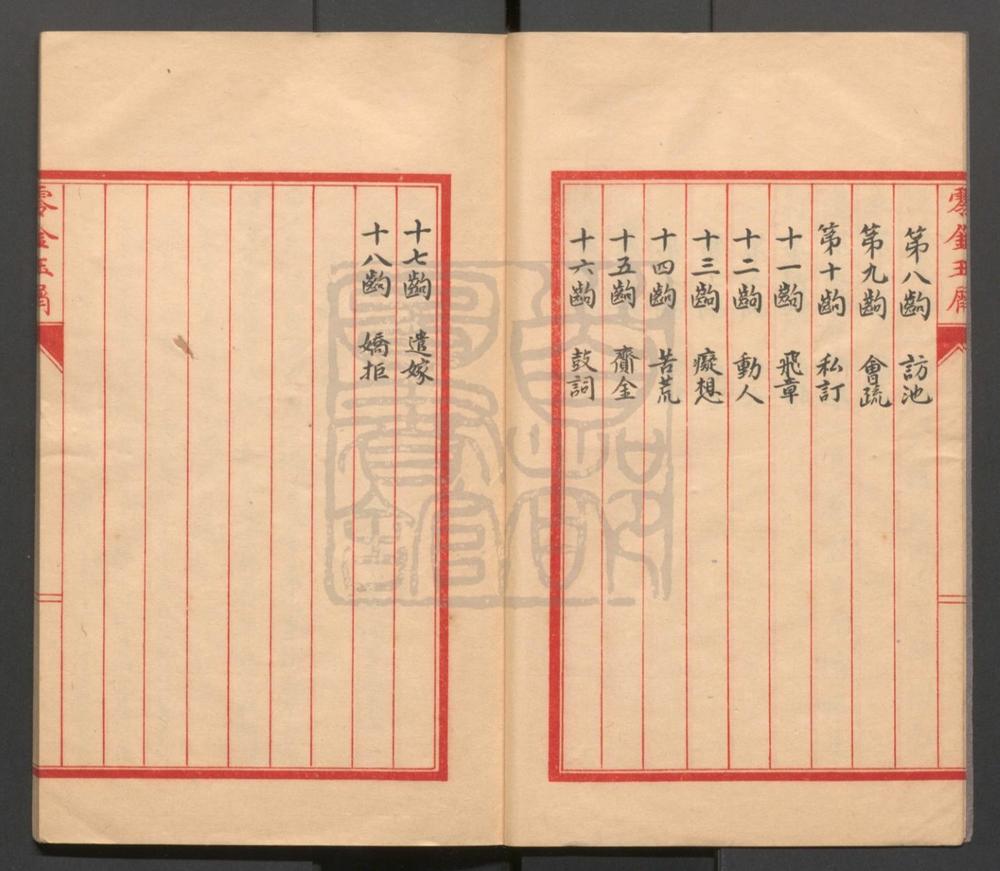 零金玉屑
第八齣 訪池
第九齣 會疏
第十齣 私訂
十一齣 飛章
十二齣 動人
十三齣 癡想
十四齣 苦荒
十五齣 齎金
十六齣 鼓詞
十七齣 遣嫁
十八齣 嬌拒
零金玉屑